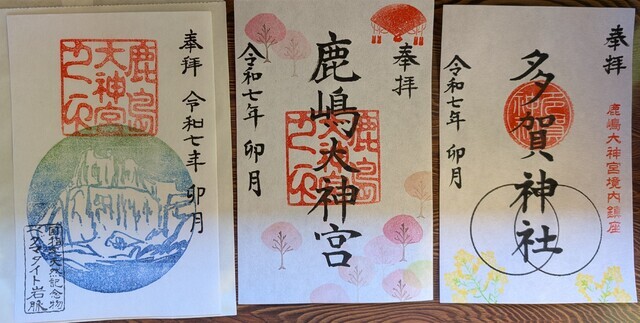 奉拝 令和七年 卯月
鹿島
大神宮
国指定天然記念物
ペグマタイト岩脈
奉拝
鹿嶋大神宮
鹿島
大神宮
令和七年 卯月
奉拝
鹿島大神宮境内鎮座
多賀神社
令和七年 卯月